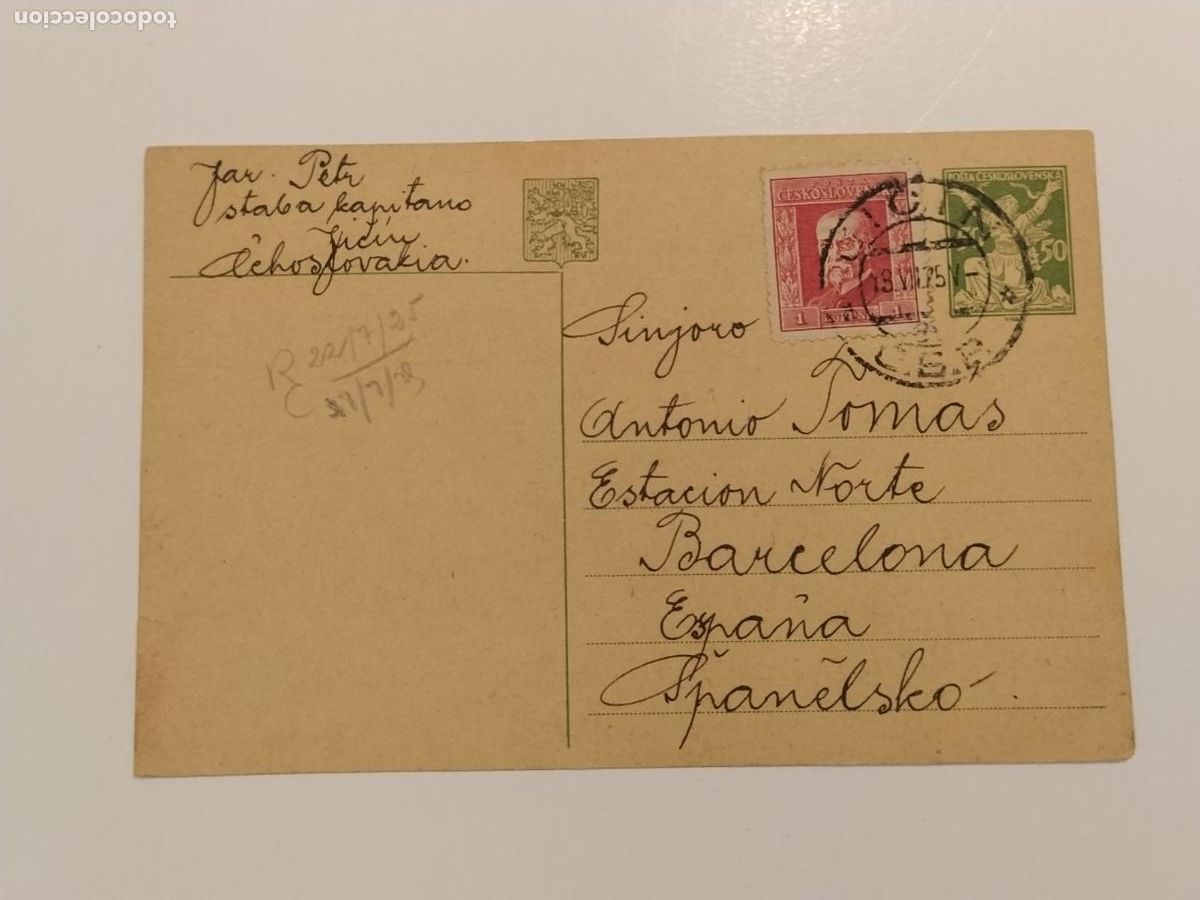 todocoleccion
Jar. Petr
staba kapitano
Jičín
Ĉeĥoslovakia.
R 22/7/25
C 27/7/25
ČESKOSLOVEN
1 1
POŠTA ČESKOSLOVENSKA
50
18.VII.25
Sinjoro
Antonio Tomas
Estacion Norte
Barcelona
España
Španělsko.